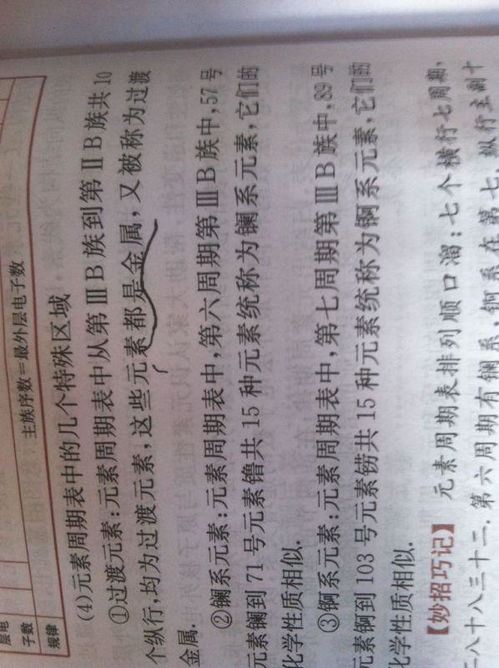 层电
子数
规律
主族序数=最外层电子数
(4)元素周期表中的几个特殊区域
①过渡元素:元素周期表中从第ⅢB族到第ⅡB族共10
个纵行,均为过渡元素,这些元素都是金属,又被称为过渡
金属.
②镧系元素:元素周期表中,第六周期第ⅢB族中,57号
元素镧到71号元素镥共15种元素统称为镧系元素,它们的
化学性质相似.
③锕系元素:元素周期表中,第七周期第ⅢB族中,89号
元素锕到103号元素铹共15种元素统称为锕系元素,它们的
化学性质相似.
【妙招巧记】 元素周期表排列顺口溜:七个横行七周期,
二八十八三十二.第六周期有镧系,锕系在第七.纵行主副十